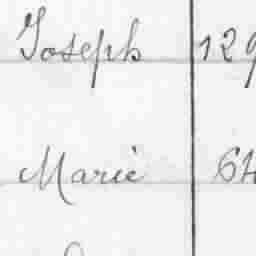 Joseph 129
Marie 64